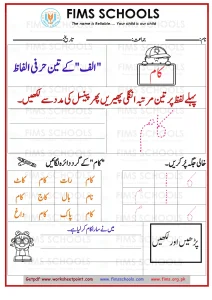 FIMS SCHOOLS
The name is Reliable.... Your child is our child
نام: جماعت: تاریخ:
کام
"الف" کے تین حرفی الفاظ
پہلے لفظ پر تین مرتبہ انگلی پھیریں پھر پینسل کی مدد سے لکھیں۔
کام
"کام" کے گرد دائرہ لگائیں خالی جگہ پُر کریں۔
کام رات کام کاٹ
نام بال کاج کام
کام پاک کام داغ
پڑھیں اور لکھیں
Getpdf www.worksheetpoint.com www.fimsschools.com www.fims.org.pk